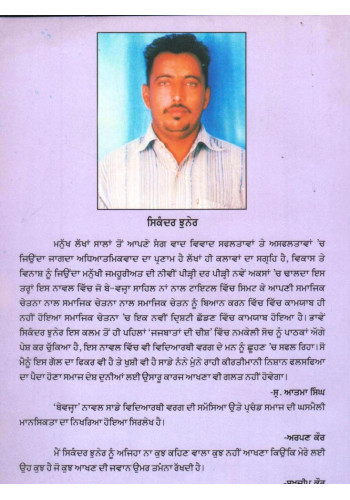 ਸਿਕੰਦਰ ਝੁਨੇਰ
ਮਨੁੱਖ ਲੱਖਾਂ ਸਾਲਾਂ ਤੋਂ ਆਪਣੇ ਸੰਗ ਵਾਦ ਵਿਵਾਦ ਸਫਲਤਾਵਾਂ ਤੇ ਅਸਫਲਤਾਵਾਂ 'ਚ
ਜਿਉਂਦਾ ਜਾਗਦਾ ਅਧਿਆਤਮਿਕਵਾਦ ਦਾ ਪ੍ਰਣਾਮ ਹੈ ਲੱਖਾਂ ਹੀ ਕਲਾਵਾਂ ਦਾ ਸਗ੍ਰਹਿ ਹੈ, ਵਿਕਾਸ ਤੇ
ਵਿਨਾਸ਼ ਨੂੰ ਜਿਉਂਦਾ ਮਨੁੱਖੀ ਜਮਹੂਰੀਅਤ ਦੀ ਨੀਵੀਂ ਪੀੜੀ ਦਰ ਪੀੜੀ ਨਵੇਂ ਅਕਸਾਂ 'ਚ ਢਾਲਦਾ ਇਸ
ਤਰ੍ਹਾਂ ਇਸ ਨਾਵਲ ਵਿੱਚ ਜੋ ਬੇ-ਵਜ੍ਹਾ ਸਾਹਿਲ ਨਾਂ ਨਾਲ ਟਾਇਟਲ ਵਿੱਚ ਸਿਮਟ ਕੇ ਆਪਣੀ ਸਮਾਜਿਕ
ਚੇਤਨਾ ਨਾਲ ਸਮਾਜਿਕ ਚੇਤਨਾ ਨਾਲ ਸਮਾਜਿਕ ਚੇਤਨਾ ਨੂੰ ਬਿਆਨ ਕਰਨ ਵਿੱਚ ਵਿੱਚ ਕਾਮਯਾਬ ਹੀ
ਨਹੀਂ ਹੋਇਆ ਸਮਾਜਿਕ ਚੇਤਨਾ 'ਚ ਇਕ ਨਵੀਂ ਦ੍ਰਿਸ਼ਟੀ ਛੱਡਣ ਵਿੱਚ ਕਾਮਯਾਬ ਹੋਇਆ ਹੈ। ਭਾਵੇਂ
ਸਿਕੰਦਰ ਝੁਨੇਰ ਇਸ ਕਲਮ ਤੋਂ ਹੀ ਪਹਿਲਾ 'ਜਜਬਾਤਾਂ ਦੀ ਚੀਸ਼' ਵਿੱਚ ਨਮਕੇਲੀ ਸੋਚ ਨੂੰ ਪਾਠਕਾਂ ਅੱਗੇ
ਪੇਸ਼ ਕਰ ਚੁੱਕਿਆ ਹੈ, ਇਸ ਨਾਵਲ ਵਿੱਚ ਵੀ ਵਿਦਿਆਰਥੀ ਵਰਗ ਦੇ ਮਨ ਨੂੰ ਛੂਹਣ 'ਚ ਸਫਲ ਰਿਹਾ।ਸੋ
ਮੈਨੂੰ ਇਸ ਗੱਲ ਦਾ ਫਿਕਰ ਵੀ ਹੈ ਤੇ ਖੁਸ਼ੀ ਵੀ ਹੈ ਸਾਡੇ ਨੰਨੇ ਮੁੰਨੇ ਰਾਹੀ ਕੀਰਤੀਮਾਨੀ ਨਿਸ਼ਾਨ ਫਲਸਫਿਆ
ਦਾ ਪੈਦਾ ਹੋਣਾ ਸਮਾਜ ਦੇਸ਼ ਦੁਨੀਆਂ ਲਈ ਉਸਾਰੂ ਕਾਰਜ ਆਖਣਾ ਵੀ ਗਲਤ ਨਹੀਂ ਹੋਵੇਗਾ।
-ਸ੍ਰ. ਆਤਮਾ ਸਿੰਘ
'ਬੇਵਜ੍ਹਾ' ਨਾਵਲ ਸਾਡੇ ਵਿਦਿਆਰਥੀ ਵਰਗ ਦੀ ਸਮੱਸਿਆ ਉਤੇ ਪ੍ਰਚੰਡ ਸਮਾਜ ਦੀ ਘਸਮੈਲੀ
ਮਾਨਸਿਕਤਾ ਦਾ ਨਿਖਰਿਆ ਹੋਇਆ ਸਿਰਲੇਖ ਹੈ।
-ਅਰਪਣ ਕੌਰ
ਮੈਂ ਸਿਕੰਦਰ ਝੁਨੇਰ ਨੂੰ ਅਜਿਹਾ ਨਾ ਕੁਝ ਕਹਿਣ ਵਾਲਾ ਕੁਝ ਨਹੀਂ ਆਖਣਾ ਕਿਉਂਕਿ ਮੇਰੇ ਲਈ
ਉਹ ਕੁਝ ਹੈ ਜੋ ਕੁਝ ਆਖਣ ਦੀ ਜਵਾਨ ਉਮਰ ਤਮੰਨਾ ਰੱਖਦੀ ਹੈ।
-ਸੁਖਦੀਪ ਕੌਰ